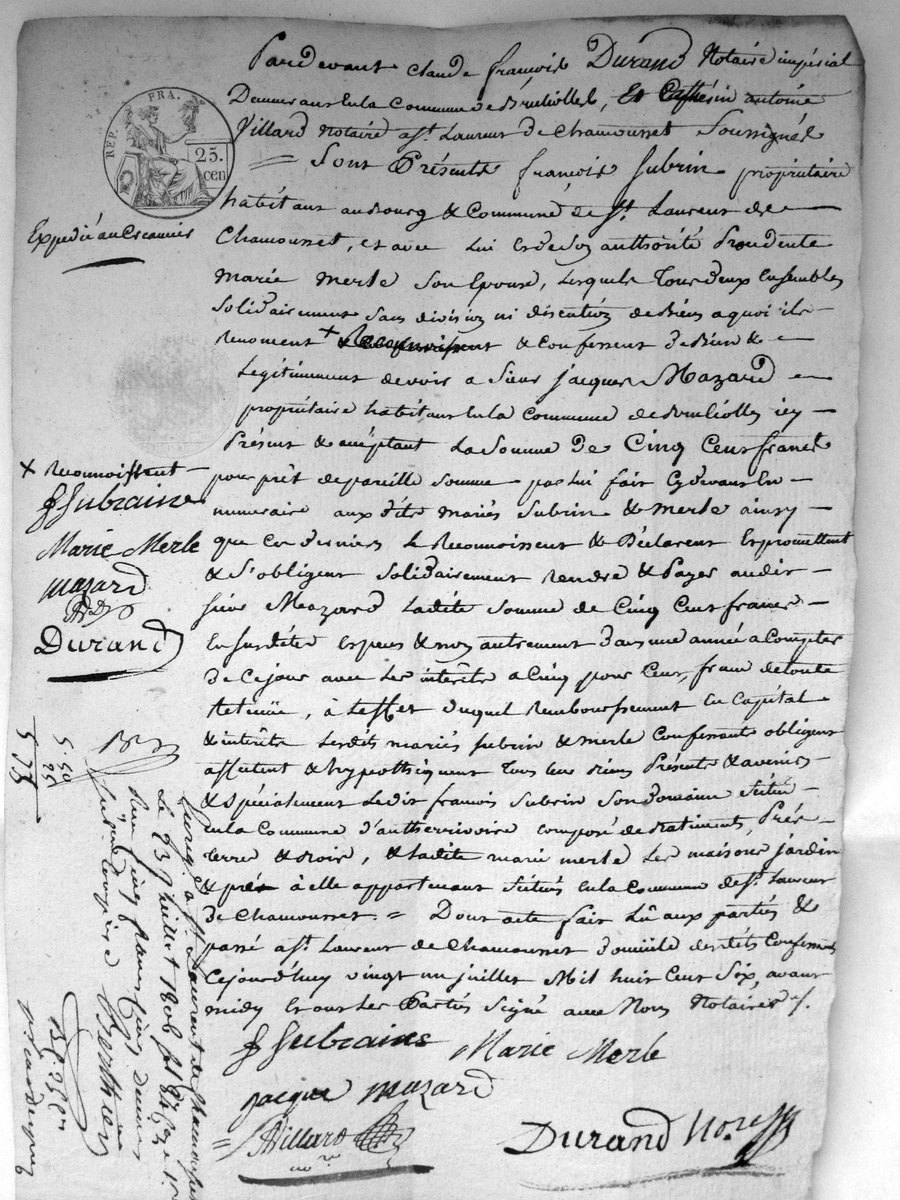 Pardevant Claude françois Durand Notaire impérial
Demeurant en la Commune de Brulliolles, Et Cathérin antoine
Villard Notaire a St. Laurent de Chamousset Soussignés
= Sont Présents françois Subrin propriétaire
habitant au Bourg & Commune de St. Laurent de
Chamousset, et avec lui et de son authorité Prudente
marie merle son Epouse, lesquels tous deux Ensembles
Solidairement sans division ni discution de Biens a quoi ils
Renoncent + & Confessent Bien &
Legitimement devoir a sieur jacques Mazard
propriétaire habitant en la Commune de Brulliolles icy
Présent & acceptant La Somme de Cinq Cent francs
pour prêt de pareille Somme par lui fait Cydevant En
numeraire aux dits mariés Subrin & merle ainsy
que ces derniers le Reconnoissent & Déclarent Et promettent
& S'obligent Solidairement rendre & Payer audit
sieur Mazard ladite Somme de Cinq Cent francs
En susdites Especes & non autrement dans une année a Compter
de Cejour avec les interêts a Cinq pour Cent, franc de toute
Retenüe, à L'effet duquel Remboursement En Capital
& interêts lesdits mariés subrin & merle Confessants obligent
affectent & hypothequent tous leurs Biens Présents & avenirs
& Spécialement ledit françois Subrin Son Domaine Situé
En la Commune d' composé de Batiments, Prés
terre & Bois, & ladite marie merle Les maisons jardin
& prés à elle appartenant Situés En la Commune de St. Laurent
de Chamousset = Dont acte fait Lû aux parties &
passé a St. Laurent de Chamousset domicile desdits Confessants
Cejourd'huy vingt un juillet Mil huit Cent Six, avant
midy Et ont Les Parties Signé avec Nous Notaires
f Subraine Marie Merle
jacque mazard
Villard
Durand No.re
REP. FRA.
25.
cen
Expedié au Creancier
+ Reconnoissent
f Subraine
Marie Merle
mazard
Durand
5 50
25
5 75
Enreg. a St. Laurent de Chamousset
Le 23 juillet 1806
Reçu Cinq francs Cinquante
Berthier